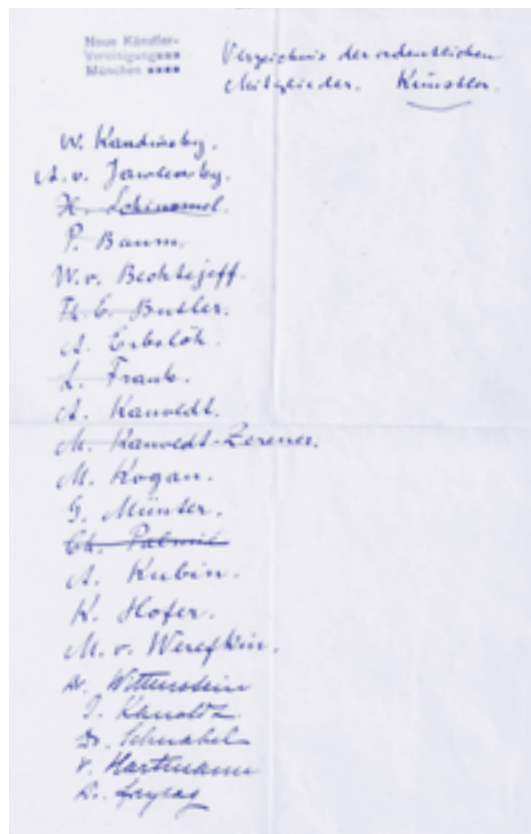 Neue Künstler-
Vereinigung
München
Verzeichnis der ordentlichen
Mitglieder. Künstler.
W. Kandinsky.
A. v. Jawlensky.
H. Schimmel.
P. Baum.
W. v. Bechtejeff.
Th. E. Butler.
A. Erbslöh.
L. Frank.
A. Kanoldt.
M. Kanoldt-Zerener.
M. Kogan.
G. Münter.
Ch. Palmié
A. Kubin.
K. Hofer.
M. v. Werefkin.
Dr. Wittenstein
J. Kanoldt.
Dr. Schnabel
v. Hartmann